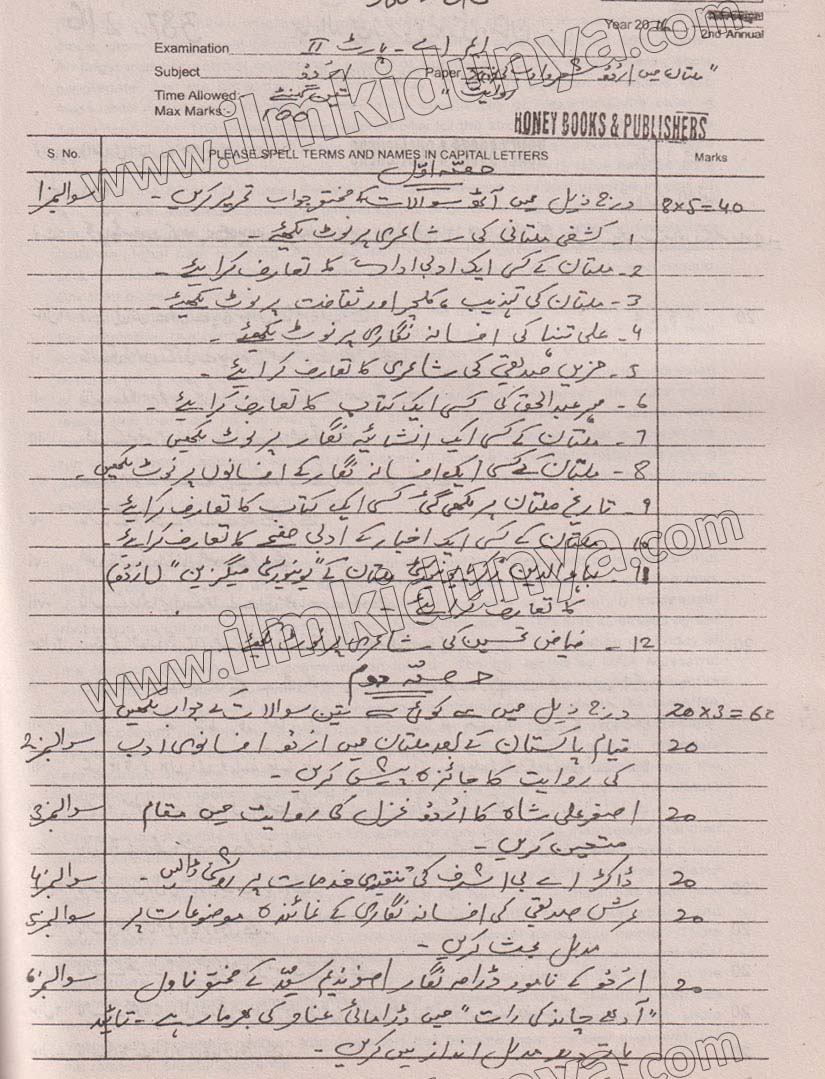 Year 20
2nd Annual
Examination ایم اے - پارٹ II
Subject اردو Paper "ملتان میں اردو شعر و ادب کی روایت"
Time Allowed:- تین گھنٹے
Max Marks:- 100
HONEY BOOKS & PUBLISHERS
S. No. PLEASE SPELL TERMS AND NAMES IN CAPITAL LETTERS Marks
حصہ اول
سوال نمبر 1 درج ذیل میں آٹھ سوالات کے مختصر جواب تحریر کریں - 8x5=40
1- کشفی ملتانی کی شاعری پر نوٹ لکھیئے -
2- ملتان کے کسی ایک ادبی ادارے کا تعارف کرایئے -
3- ملتان کی تہذیب، کلچر اور ثقافت پر نوٹ لکھیئے -
4- علی تنہا کی افسانہ نگاری پر نوٹ لکھیئے -
5- حزیں صدیقی کی شاعری کا تعارف کرایئے -
6- مہر عبدالحق کی کسی ایک کتاب کا تعارف کرایئے -
7- ملتان کے کسی ایک انشائیہ نگار پر نوٹ لکھیں -
8- ملتان کے کسی ایک افسانہ نگار کے افسانوں پر نوٹ لکھیں -
9- تاریخ ملتان پر لکھی گئی کسی ایک کتاب کا تعارف کرایئے -
10- ملتان کے کسی ایک اخبار کے ادبی صفحے کا تعارف کرایئے -
11- بہاء الدین زکریا یونیورسٹی ملتان کے "یونیورسٹی میگزین" (اردو)
کا تعارف کرایئے -
12- فیاض تحسین کی شاعری پر نوٹ لکھیئے -
حصہ دوم
درج ذیل میں سے کوئی سے تین سوالات کے جواب لکھیں 20x3=60
سوال نمبر 2 قیام پاکستان کے بعد ملتان میں اردو افسانوی ادب 20
کی روایت کا جائزہ پیش کریں -
سوال نمبر 3 اصغر علی شاہ کا اردو غزل کی روایت میں مقام 20
متعین کریں -
سوال نمبر 4 ڈاکٹر اے بی اشرف کی تنقیدی خدمات پر روشنی ڈالیں - 20
سوال نمبر 5 عرش صدیقی کی افسانہ نگاری کے نمائندہ موضوعات پر 20
مدلل بحث کریں -
سوال نمبر 6 اردو کے نامور ڈرامہ نگار اصغر ندیم سید کے مختصر ناول 20
"آدھے چاند کی رات" میں ڈرامائی عناصر کی بھرمار ہے - تائید
یا تردید مدلل انداز میں کریں -
www.ilmkidunya.com
www.ilmkidunya.com
www.ilmkidunya.com